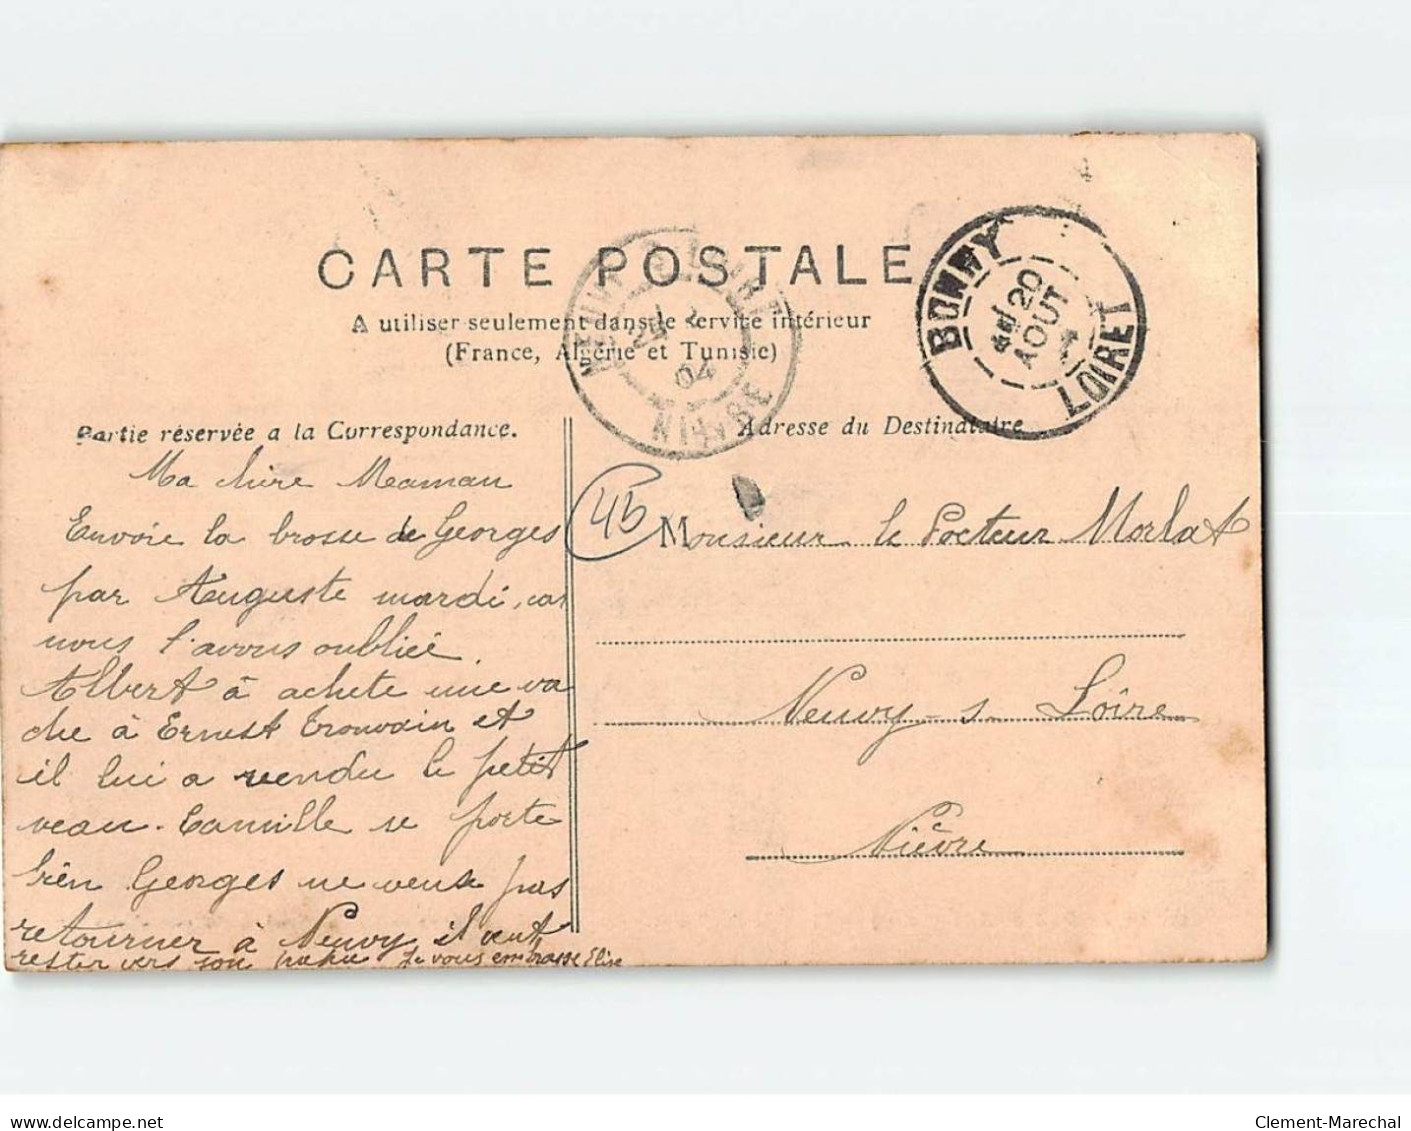 CARTE POSTALE
A utiliser seulement dans le service intérieur
(France, Algérie et Tunisie)
BONNY
20
AOUT
LOIRET
04
NIEVRE
Partie réservée a la Correspondance.
Adresse du Destinataire
Ma chère Maman
Envoie la brosse de Georges
par Auguste mardi, car
nous l'avons oubliée.
Albert à achete une va
che à Ernest Trouvain et
il lui a vendu le petit
veau. Camille se porte
bien Georges ne veux pas
retourner à Neuvy, il veut
rester vers son papa Je vous embrasse Elise
45
Monsieur le Docteur Morlat
Neuvy-s-Loire
Nièvre
www.delcampe.net
Clement-Marechal